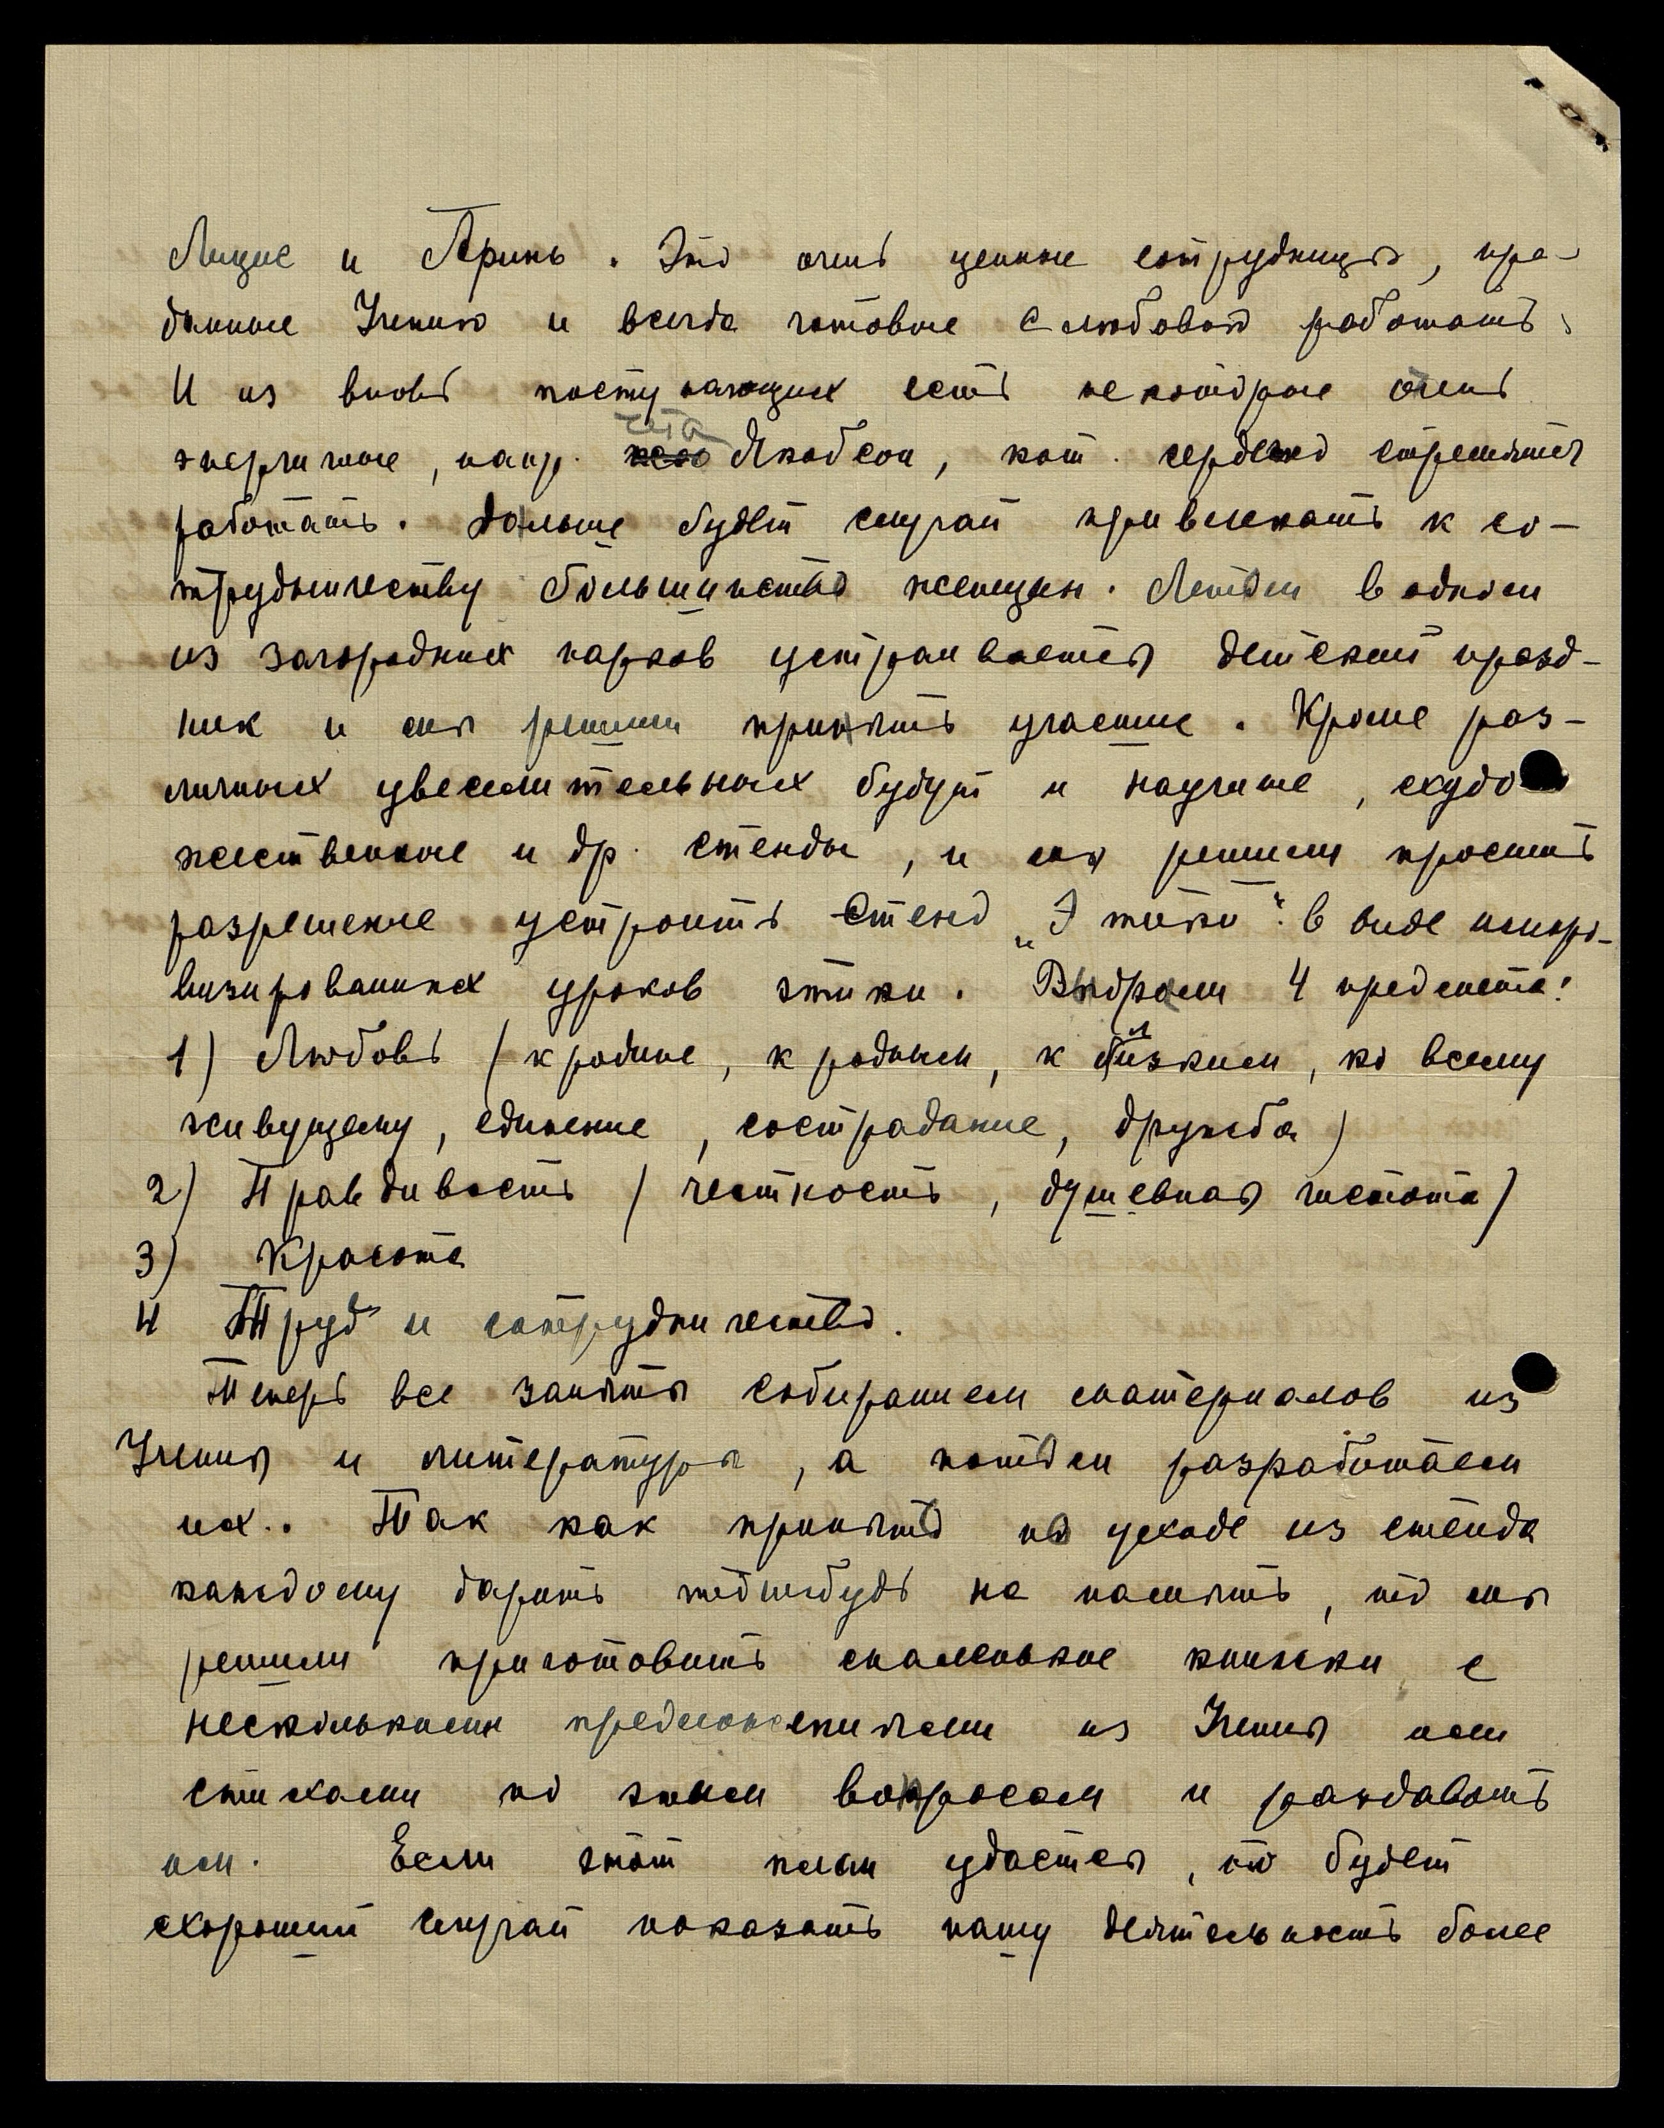 Лицис и Принь. Это очень ценные сотрудницы, пре-
данные Учению и всегда готовые с любовью работать.
И из вновь поступающих есть некоторые очень
энергичные, напр. чета Якобсон, кот. сердечно стремятся
работать. Дальше будет случай привлекать к со-
трудничеству большинство женщин. Летом в одном
из загородных парков устраивается детский празд-
ник и мы решили принять участие. Кроме раз-
личных увеселительных будут и научные, худо-
жественные и др. стенды, и мы решили просить
разрешение устроить стенд „Этики“ в виде импро-
визированных уроков этики. Выбрали 4 предмета:
1) Любовь (к родине, к родным, к близким, ко всему
живущему, единение, сострадание, дружба)
2) Правдивость (честность, душевная чистота)
3) Красота
4 Труд и сотрудничество.
Теперь все заняты собиранием материалов из
Учения и литературы, а потом разработаем
их. Так как принято по уходе из стенда
каждому дарить что нибудь на память, то мы
решили приготовить маленькие книжки с
несколькими предложениями из Учения или
стихами по этим вопросам и раздавать
им. Если этот план удастся, то будет
хороший случай показать нашу деятельность более